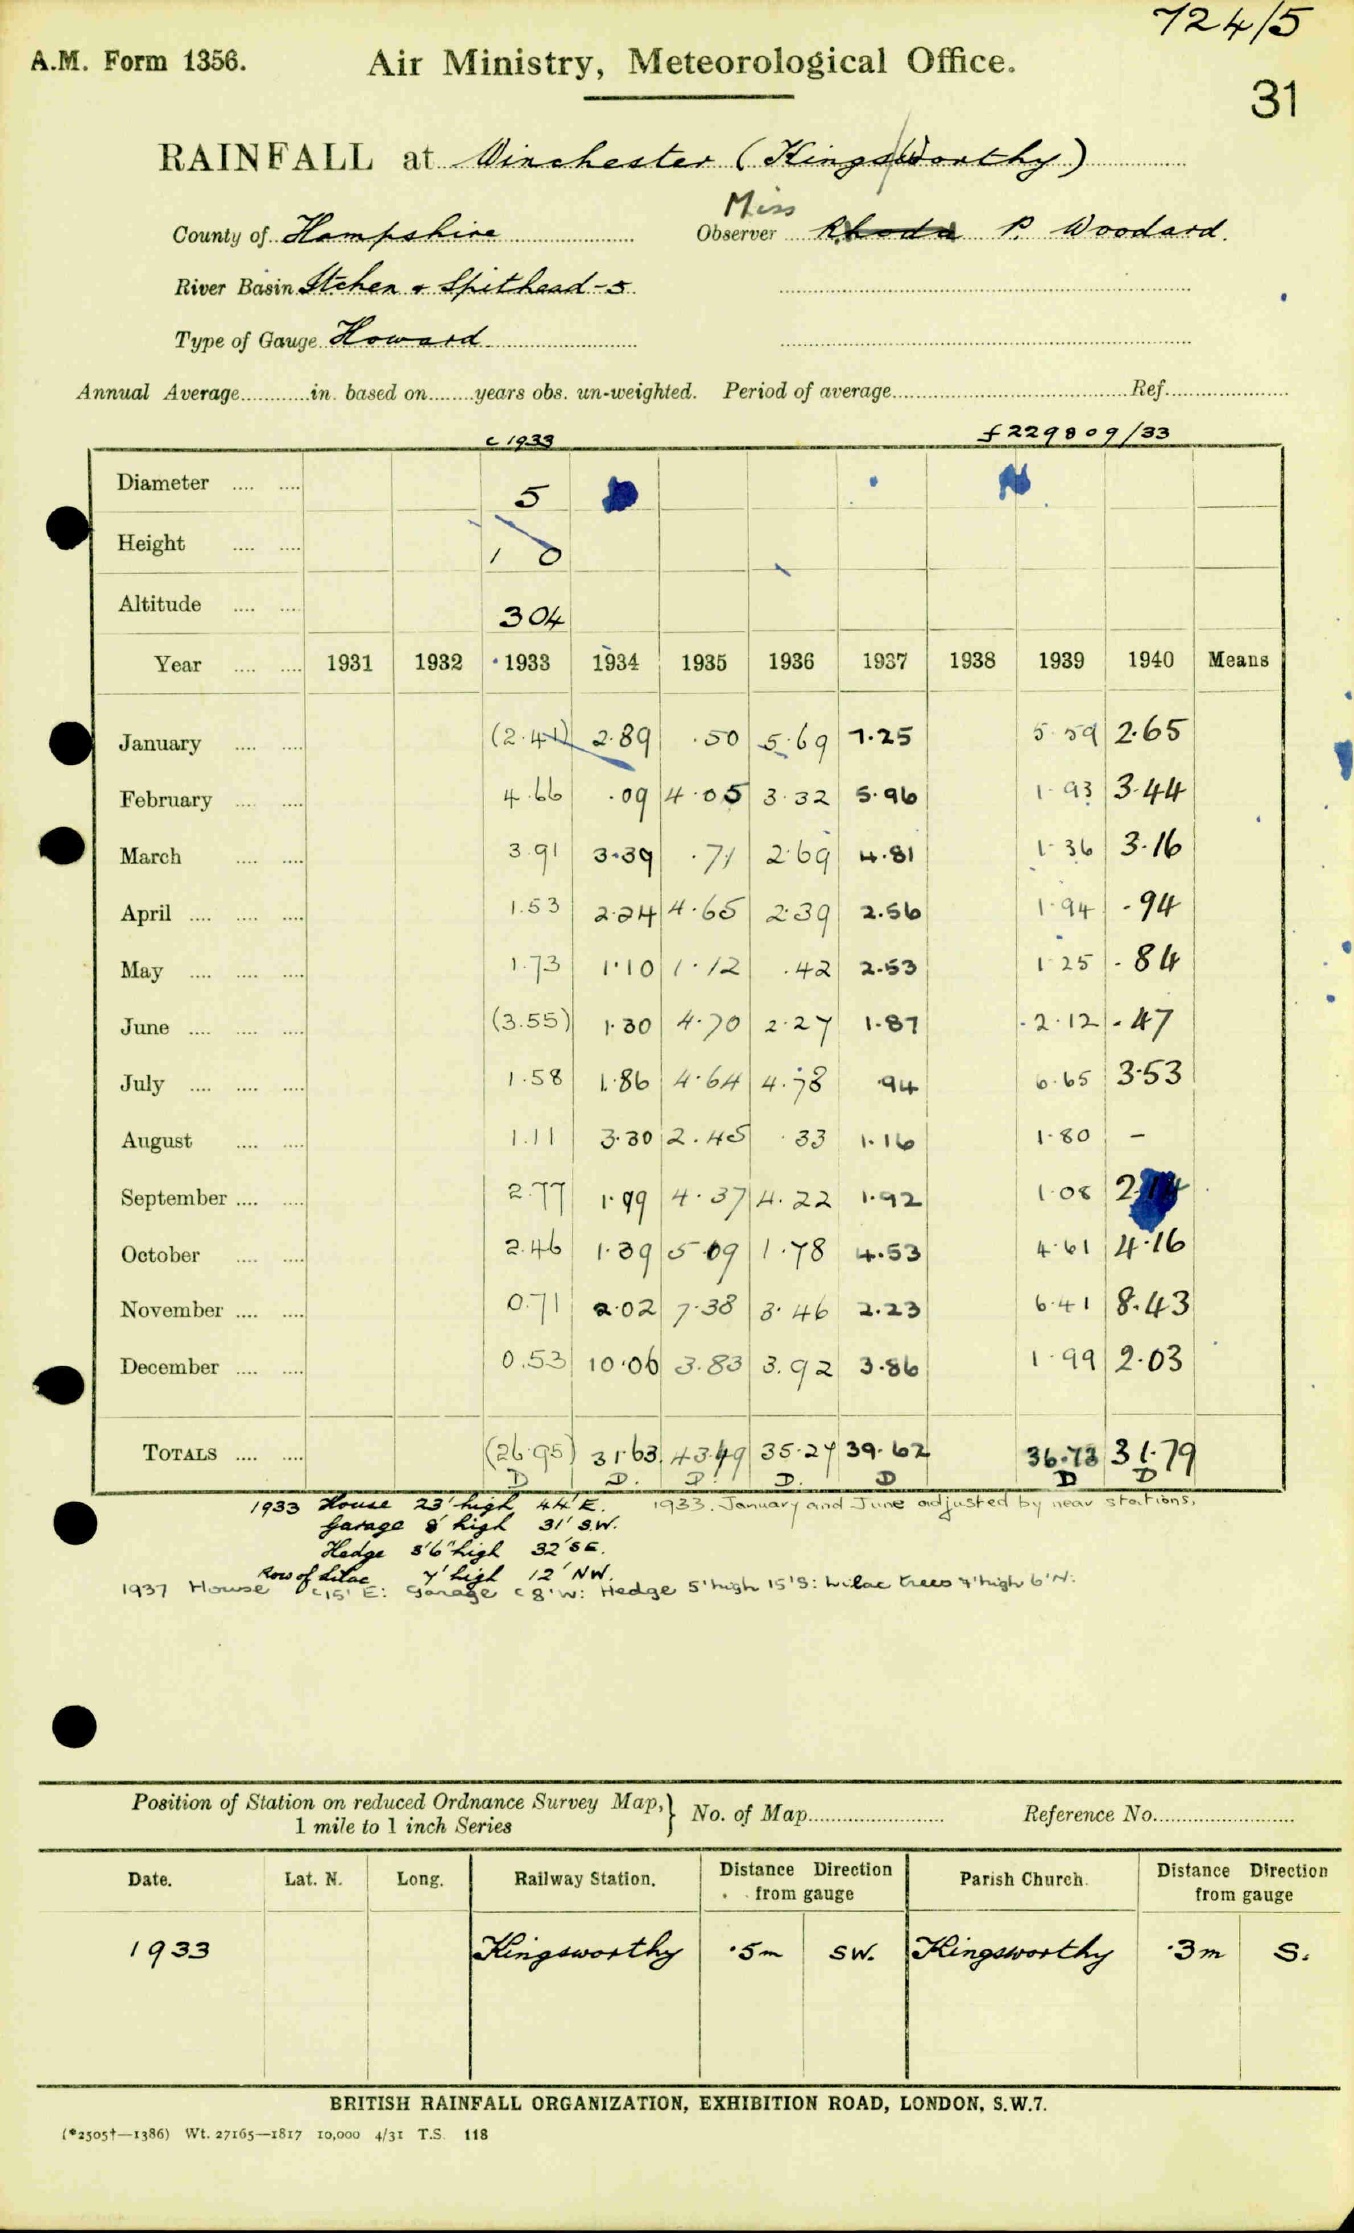 724/5
A.M. Form 1356. Air Ministry, Meteorological Office.
31
RAINFALL at Winchester (Kings/Worthy)
Miss
County of Hampshire Observer Rhoda P. Woodard.
River Basin Itchen & Spithead - 5
Type of Gauge Howard
Annual Average............in. based on........years obs. un-weighted. Period of average............ Ref............
c 1933 f 229809/33
Diameter .... .... 5
Height .... .... 1 0
Altitude .... .... 304
Year .... .... 1931 1932 1933 1934 1935 1936 1937 1938 1939 1940 Means
January .... .... (2.41) 2.89 .50 5.69 7.25 5.59 2.65
February .... .... 4.66 .09 4.05 3.32 5.96 1.93 3.44
March .... .... 3.91 3.39 .71 2.69 4.81 1.36 3.16
April .... .... .... 1.53 2.24 4.65 2.39 2.56 1.94 .94
May .... .... .... 1.73 1.10 1.12 .42 2.53 1.25 .84
June .... .... .... (3.55) 1.30 4.70 2.27 1.87 2.12 .47
July .... .... .... 1.58 1.86 4.64 4.78 .94 6.65 3.53
August .... .... 1.11 3.30 2.45 .33 1.16 1.80 -
September .... .... 2.77 1.99 4.37 4.22 1.92 1.08 2.14
October .... .... 2.46 1.39 5.09 1.78 4.53 4.61 4.16
November .... .... 0.71 2.02 7.38 3.46 2.23 6.41 8.43
December .... .... 0.53 10.06 3.83 3.92 3.86 1.99 2.03
TOTALS .... .... (26.95) 31.63 43.49 35.27 39.62 36.73 31.79
D D. D. D. D D D
1933 House 23' high 44' E. 1933. January and June adjusted by near stations.
Garage 8' high 31' S.W.
Hedge 5'6" high 32' SE.
Row of Lilac 7' high 12' NW.
1937 House c 15' E: Garage c 8' W: Hedge 5' high 15' S: Lilac trees 7' high 6' N:
Position of Station on reduced Ordnance Survey Map, } No. of Map............ Reference No............
1 mile to 1 inch Series
Date. Lat. N. Long. Railway Station. Distance Direction from gauge Parish Church. Distance Direction from gauge
1933 Kingsworthy .5m SW. Kingsworthy .3m S.
BRITISH RAINFALL ORGANIZATION, EXHIBITION ROAD, LONDON, S.W.7.
(*2505†—1386) Wt. 27165—1817 10,000 4/31 T.S. 118